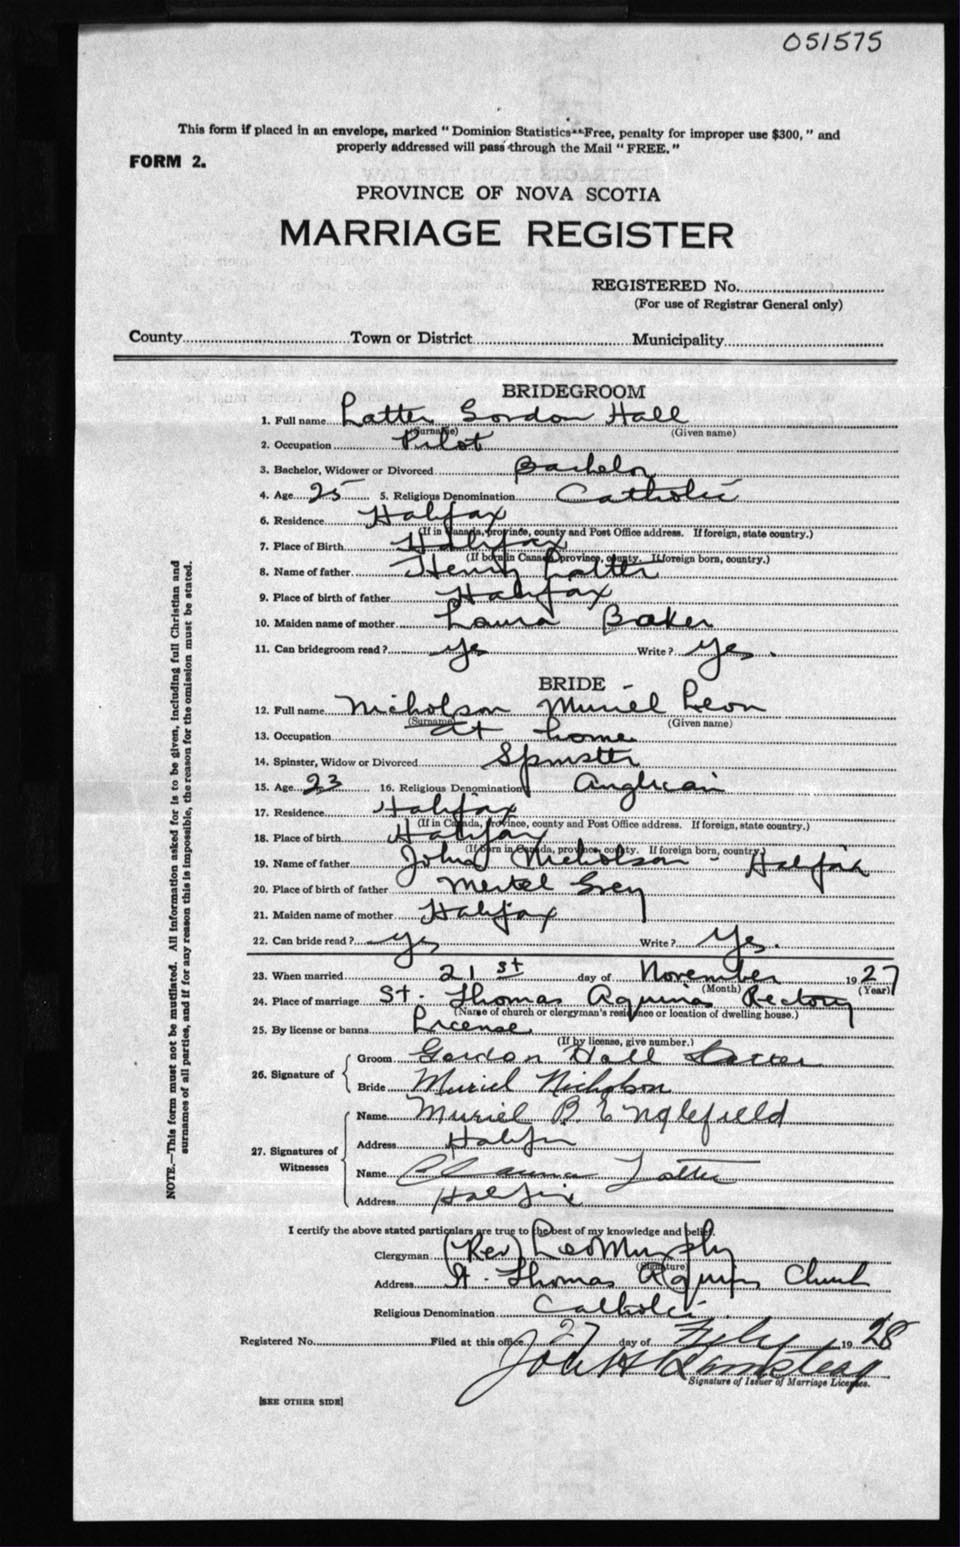 051575
This form if placed in an envelope, marked "Dominion Statistics--Free, penalty for improper use $300," and
properly addressed will pass through the Mail "FREE."
FORM 2.
PROVINCE OF NOVA SCOTIA
MARRIAGE REGISTER
REGISTERED No.
(For use of Registrar General only)
County Town or District Municipality
BRIDEGROOM
1. Full name Latter Gordon Hall
(Surname) (Given name)
2. Occupation Pilot
3. Bachelor, Widower or Divorced Bachelor
4. Age 25 5. Religious Denomination Catholic
6. Residence Halifax
(If in Canada, province, county and Post Office address. If foreign, state country.)
7. Place of Birth Halifax
(If born in Canada, province, county. If foreign born, country.)
8. Name of father Henry Latter
9. Place of birth of father Halifax
10. Maiden name of mother Laura Baker
11. Can bridegroom read? yes Write? yes.
BRIDE -
12. Full name Nicholson Muriel Leon
(Surname) (Given name)
13. Occupation at home
14. Spinster, Widow or Divorced Spinster
15. Age 23 16. Religious Denomination Anglican
17. Residence Halifax
(If in Canada, province, county and Post Office address. If foreign, state country.)
18. Place of birth Halifax
(If born in Canada, province, county. If foreign born, country.)
19. Name of father John Nicholson - Halifax
20. Place of birth of father Mertel Grey
21. Maiden name of mother Halifax
22. Can bride read? yes Write? Yes.
23. When married 21st day of November 1927
(Month) (Year)
24. Place of marriage St. Thomas Aquinas Rectory
(Name of church or clergyman's residence or location of dwelling house.)
25. By license or banns License
(If by license, give number.)
26. Signature of Groom Gordon Hall Latter
Bride Muriel Nicholson
27. Signatures of Witnesses Name Muriel B. Englefield
Address Halifax
Name Latter
Address Halifax
I certify the above stated particulars are true to the best of my knowledge and belief.
Clergyman (Rev) Leo Murphy
(Signature)
Address St. Thomas Aquinas Church
Religious Denomination Catholic.
Registered No. Filed at this office 27 day of 1928
Signature of Issuer of Marriage Licenses.
[SEE OTHER SIDE]
NOTE.—This form must not be mutilated. All information asked for is to be given, including full Christian and
surnames of all parties, and if for any reason this is impossible, the reason for the omission must be stated.